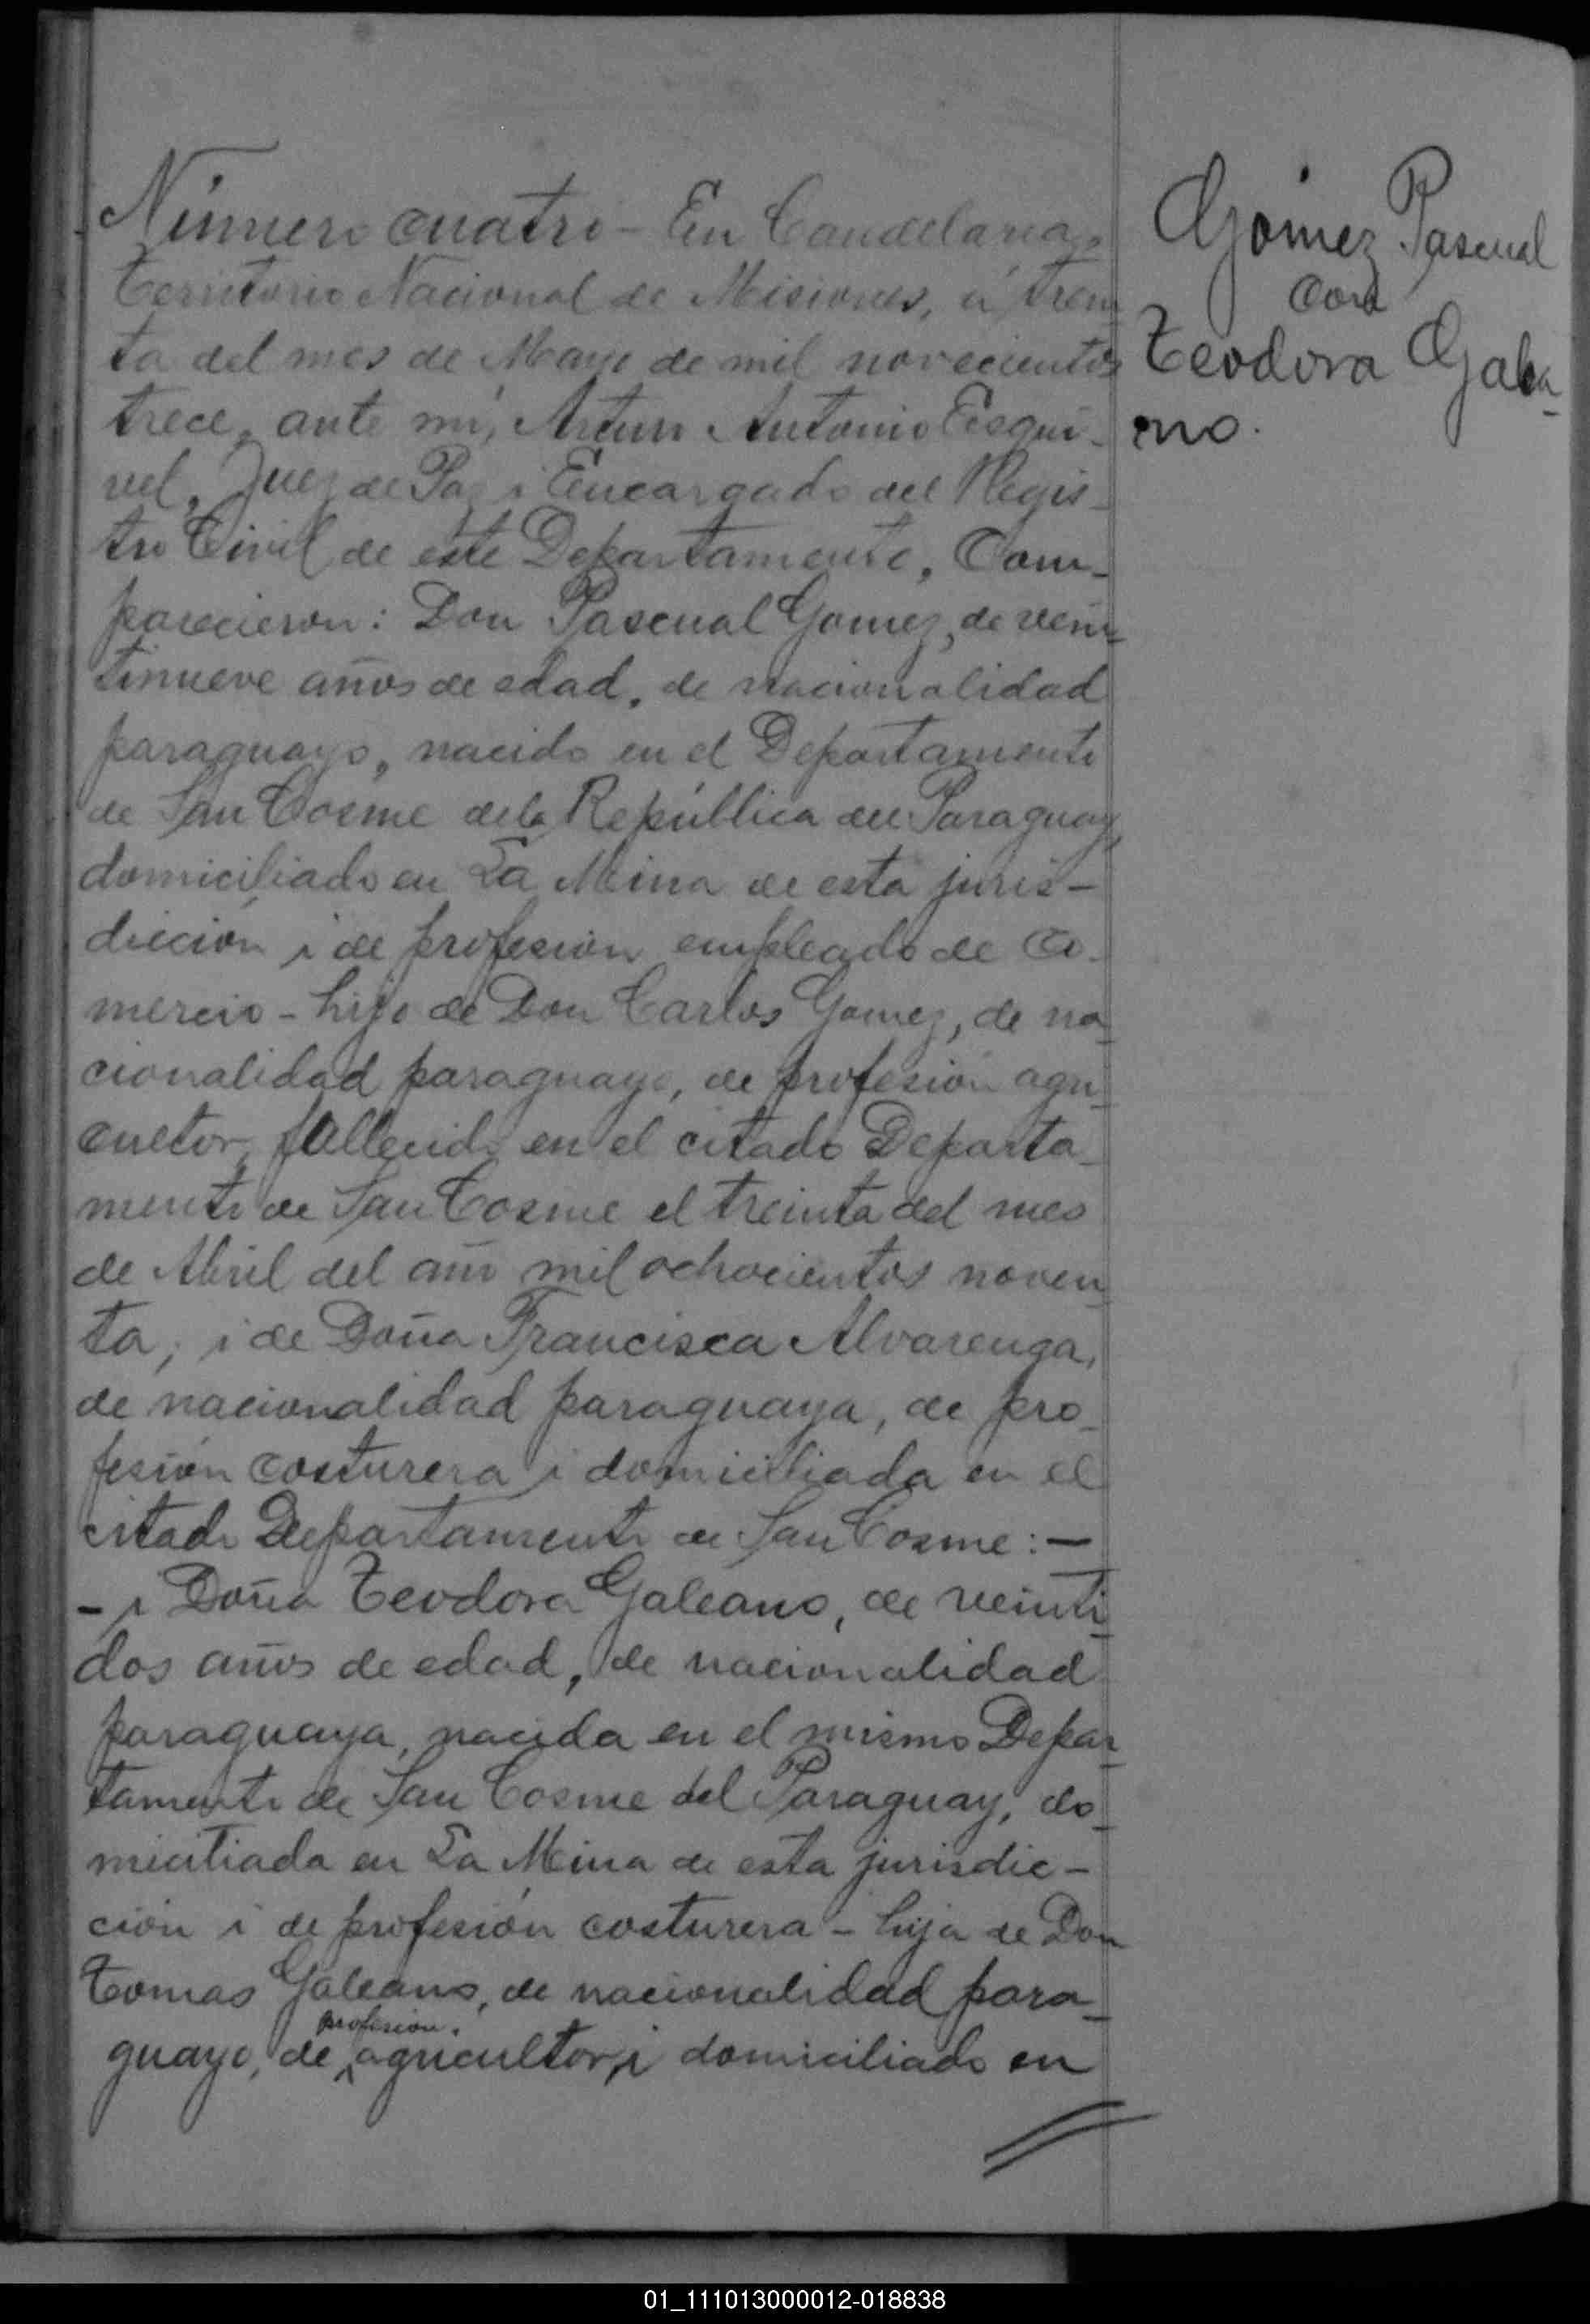 Número cuatro - En Candelaria,
Territorio Nacional de Misiones, á trein
ta del mes de Mayo de mil novecientos
trece, ante mí, Arturo Antonio Esqui-
vel, Juez de Paz i Encargado del Regis-
tro Civil de este Departamento, Com-
parecieron: Don Pascual Gomez, de vein-
tinueve años de edad, de nacionalidad
paraguayo, nacido en el Departamento
de San Cosme de la República del Paraguay,
domiciliado en La Mina de esta juris-
dicción i de profesión empleado de Co-
mercio - hijo de Don Carlos Gomez, de na-
cionalidad paraguayo, de profesión agri-
cultor, fallecido en el citado Departa-
mento de San Cosme el treinta del mes
de Abril del año mil ochocientos noven-
ta, i de Doña Francisca Alvarenga,
de nacionalidad paraguaya, de pro-
fesión costurera i domiciliada en el
citado Departamento de San Cosme: -
- i Doña Teodora Galeano, de veinti-
dos años de edad, de nacionalidad
paraguaya, nacida en el mismo Depar-
tamento de San Cosme del Paraguay, do-
miciliada en La Mina de esta jurisdic-
ción i de profesión costurera - hija de Don
Tomas Galeano, de nacionalidad para-
profesion.
guayo, de agricultor, i domiciliado en
Gómez Pascual
con
Teodora Galea-
no.
01_111013000012-018838